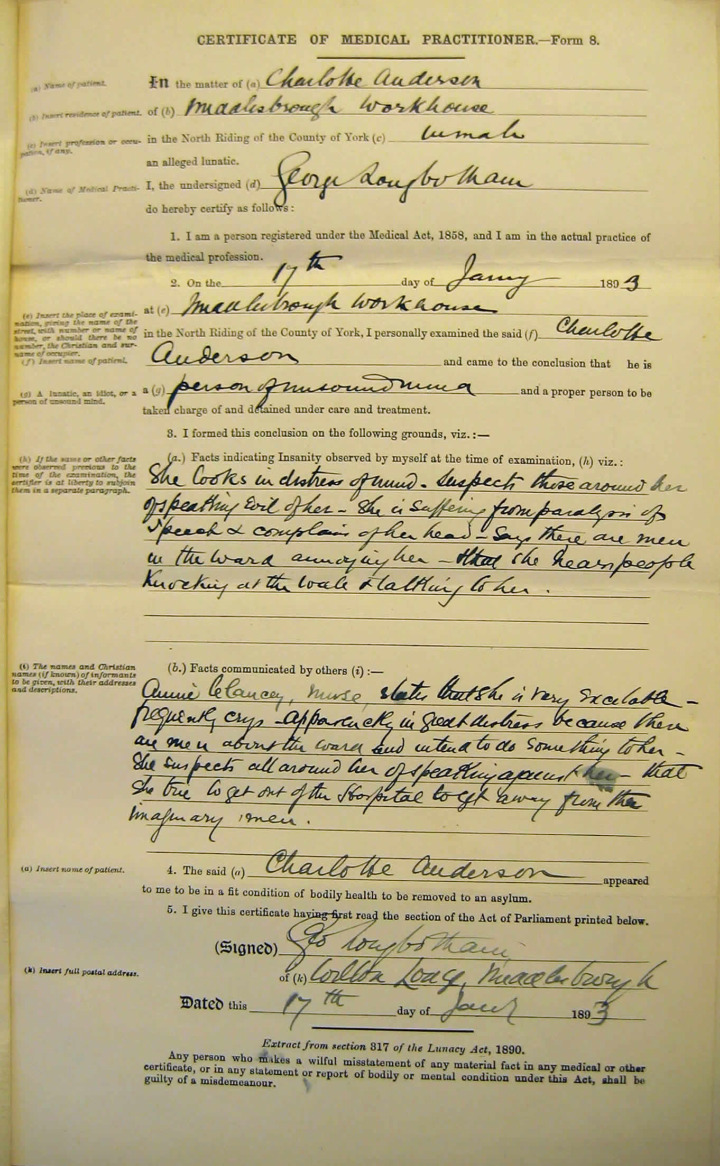 CERTIFICATE OF MEDICAL PRACTITIONER.—Form 8.
(a) Name of patient.
In the matter of (a) Charlotte Anderson
(b) Insert residence of patient.
of (b) Middlesbrough Workhouse
(c) Insert profession or occupation, if any.
in the North Riding of the County of York (c) inmate
an alleged lunatic.
(d) Name of Medical Practitioner.
I, the undersigned (d) George Longbotham
do hereby certify as follows:
1. I am a person registered under the Medical Act, 1858, and I am in the actual practice of
the medical profession.
2. On the 17th day of Jany 1893
(e) Insert the place of examination, giving the name of the street, with number or name of house, or should there be no number, the Christian and surname of occupier.
at (e) Middlesbrough Workhouse
in the North Riding of the County of York, I personally examined the said (f) Charlotte
(f) Insert name of patient.
Anderson and came to the conclusion that he is
(g) A lunatic, an idiot, or a person of unsound mind.
a (g) person of unsound mind and a proper person to be
taken charge of and detained under care and treatment.
3. I formed this conclusion on the following grounds, viz.:—
(h) If the same or other facts were observed previous to the time of the examination, the certifier is at liberty to subjoin them in a separate paragraph.
(a.) Facts indicating Insanity observed by myself at the time of examination, (h) viz.:
She looks in distress of mind - suspects those around her
of speaking Evil of her - She is suffering from paralysis of
Speech & complains of her head - Says there are men
in the ward annoying her - that she hears people
Knocking at the walls & talking to her.
(i) The names and Christian names (if known) of informants to be given, with their addresses and descriptions.
(b.) Facts communicated by others (i):—
Annie Clancey, nurse, states that she is very Excitable -
frequently crys - apparently in great distress because there
are men about the ward and intend to do something to her -
She suspects all around her of speaking against her - that
She tries to get out of the Hospital to get away from the
imaginary men.
(a) Insert name of patient.
4. The said (a) Charlotte Anderson appeared
to me to be in a fit condition of bodily health to be removed to an asylum.
5. I give this certificate having first read the section of the Act of Parliament printed below.
(Signed) Geo Longbotham
(k) Insert full postal address.
of (k) Lodge, Middlesbrough
Dated this 17th day of Jany 1893
Extract from section 317 of the Lunacy Act, 1890.
Any person who makes a wilful misstatement of any material fact in any medical or other
certificate, or in any statement or report of bodily or mental condition under this Act, shall be
guilty of a misdemeanour.